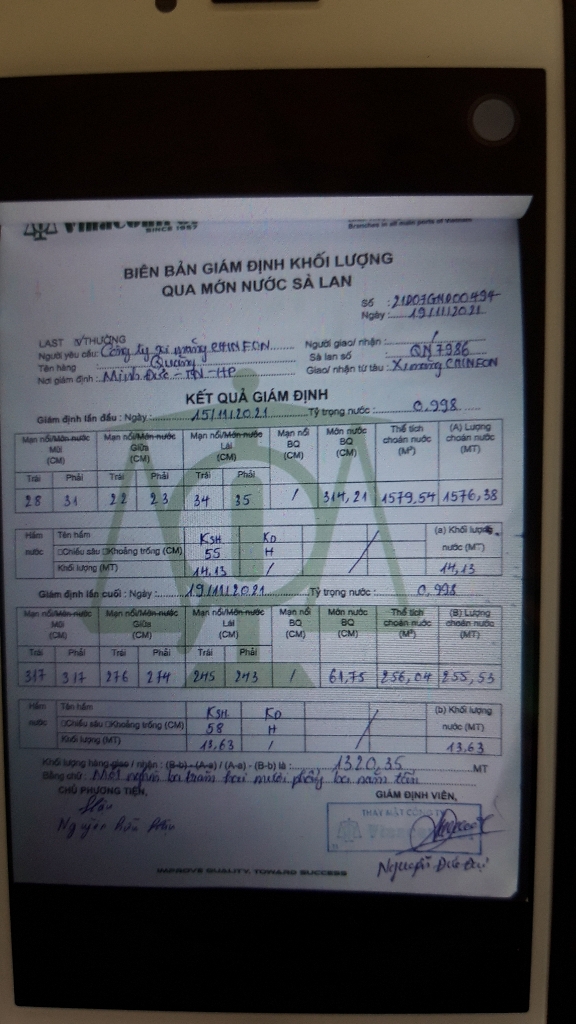 Vinacontrol
SINCE 1957
Branches in all main parts of Vietnam
BIÊN BẢN GIÁM ĐỊNH KHỐI LƯỢNG
QUA MỚN NƯỚC SÀ LAN
Số : 21D03GHD00494
Ngày : 19/11/2021
LAST VTHƯỜNG
Người yêu cầu: Công ty xi măng CHINFON
Người giao/ nhận : /
Tên hàng : Quặng
Sà lan số : QN 7986
Nơi giám định : Minh Đức - TN - HP
Giao/ nhận từ tàu : Xi măng CHINFON
KẾT QUẢ GIÁM ĐỊNH
Giám định lần đầu : Ngày : 15/11/2021 Tỷ trọng nước : 0,998
Mạn nổi/Mớn nước Mũi (CM) Mạn nổi/Mớn nước Giữa (CM) Mạn nổi/Mớn nước Lái (CM) Mạn nổi BQ (CM) Mớn nước BQ (CM) Thể tích choán nước (M³) (A) Lượng choán nước (MT)
Trái Phải Trái Phải Trái Phải
28 31 22 23 34 35 / 314,21 1579,54 1576,38
Hầm nước Tên hầm KSH KD (a) Khối lượng nước (MT)
□Chiều sâu □Khoảng trống (CM) 55 H
Khối lượng (MT) 14,13 / 14,13
Giám định lần cuối : Ngày : 19/11/2021 Tỷ trọng nước : 0,998
Mạn nổi/Mớn nước Mũi (CM) Mạn nổi/Mớn nước Giữa (CM) Mạn nổi/Mớn nước Lái (CM) Mạn nổi BQ (CM) Mớn nước BQ (CM) Thể tích choán nước (M³) (B) Lượng choán nước (MT)
Trái Phải Trái Phải Trái Phải
317 317 276 274 245 243 / 61,75 256,04 255,53
Hầm nước Tên hầm KSH KD (b) Khối lượng nước (MT)
□Chiều sâu □Khoảng trống (CM) 58 H
Khối lượng (MT) 13,63 / 13,63
Khối lượng hàng giao / nhận : (B-b) - (A-a) / (A-a) - (B-b) là : 1320,35 MT
Bằng chữ : Một nghìn ba trăm hai mươi phẩy ba năm tấn
CHỦ PHƯƠNG TIỆN, GIÁM ĐỊNH VIÊN,
THAY MẶT CÔNG TY
Vinacontrol
Nguyễn Đức
IMPROVE QUALITY, TOWARD SUCCESS